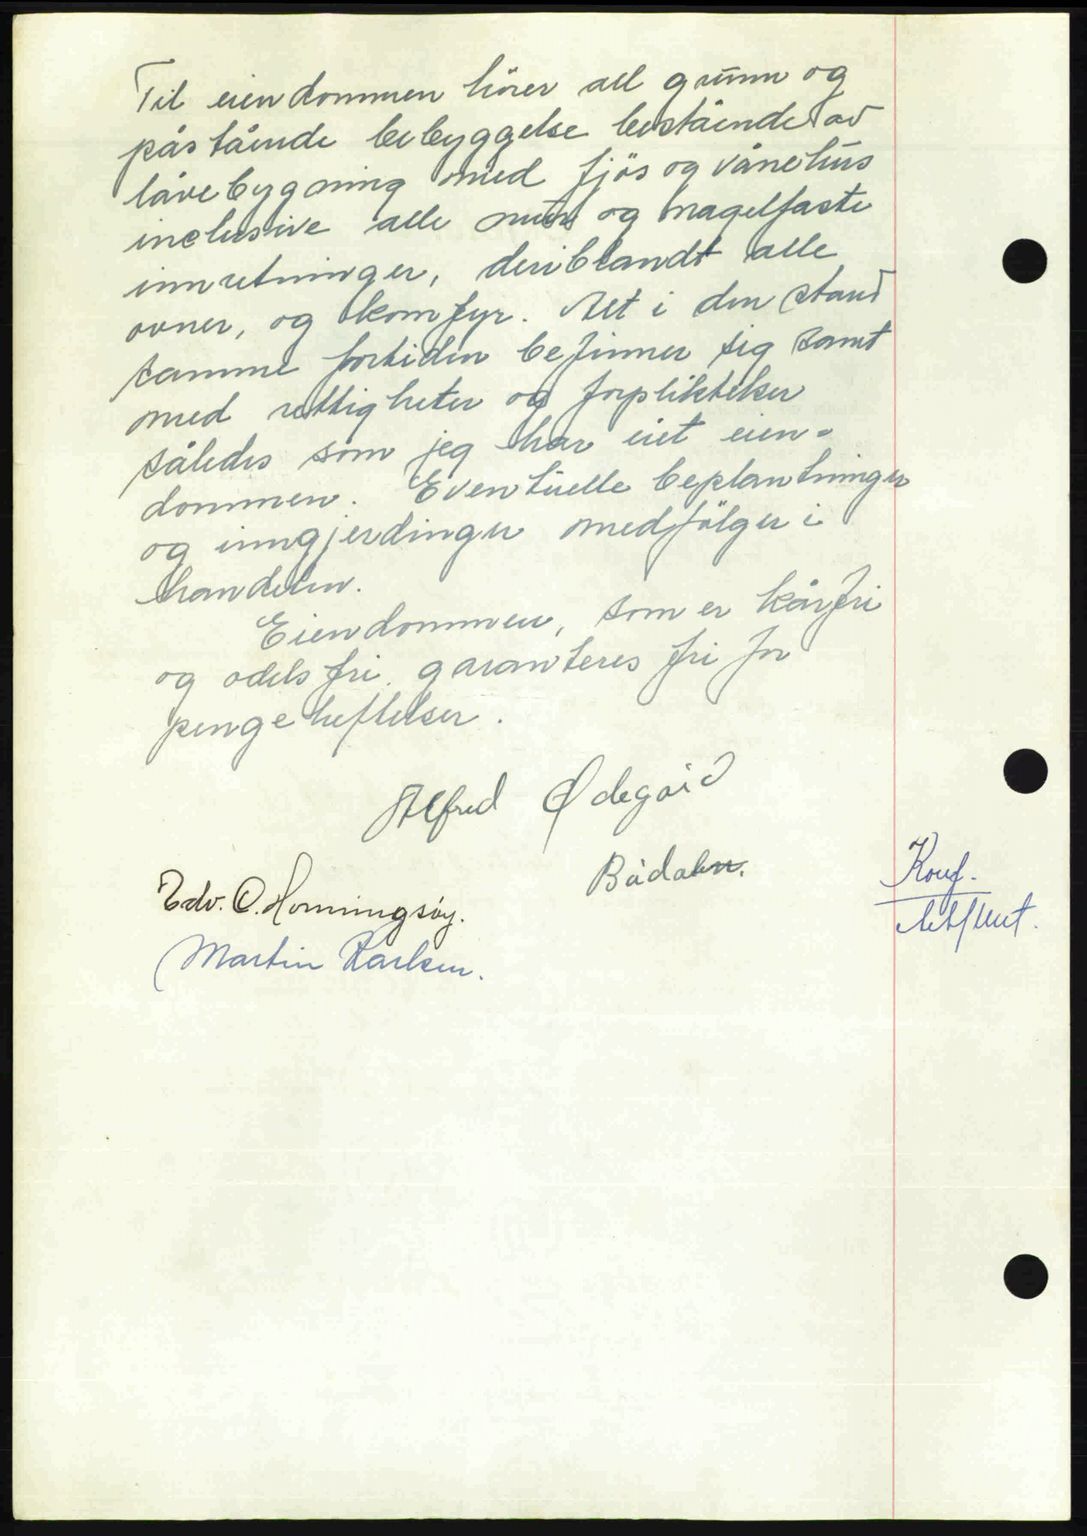 Til eiendommen hörer all grunn og
påstående bebyggelse bestående av
låvebygning med fjös og vånehus
inclusive alle mur og nagelfaste
innretninger, deriblandt alle
ovner, og komfyr. Alt i den stand
samme fortiden befinner sig samt
med rettigheter og forpliktelser
således som jeg har eiet eien-
dommen. Eventuelle beplantninger
og inngjerdinger medfölger i
handelen.
Eiendommen, som er kårfri
og odelsfri. garanteres fri for
pengeheftelser.
Alfred Ødegård
Bådalen.
Edv. O. Honningsøy.
Martin Karlsen.
Konf.